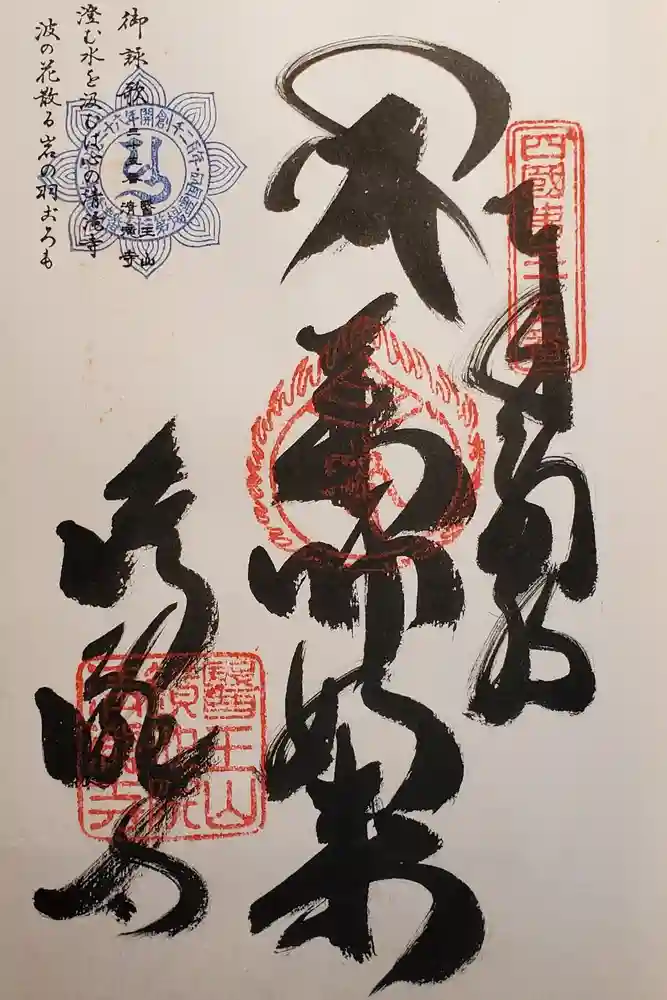 四國第三十五番
薬師如来
清瀧寺
醫王山
鏡池院
清瀧寺
御詠歌 三十五番 醫王山
清滝寺
澄む水を汲むは心の清滝寺
波の花散る岩の羽ごろも